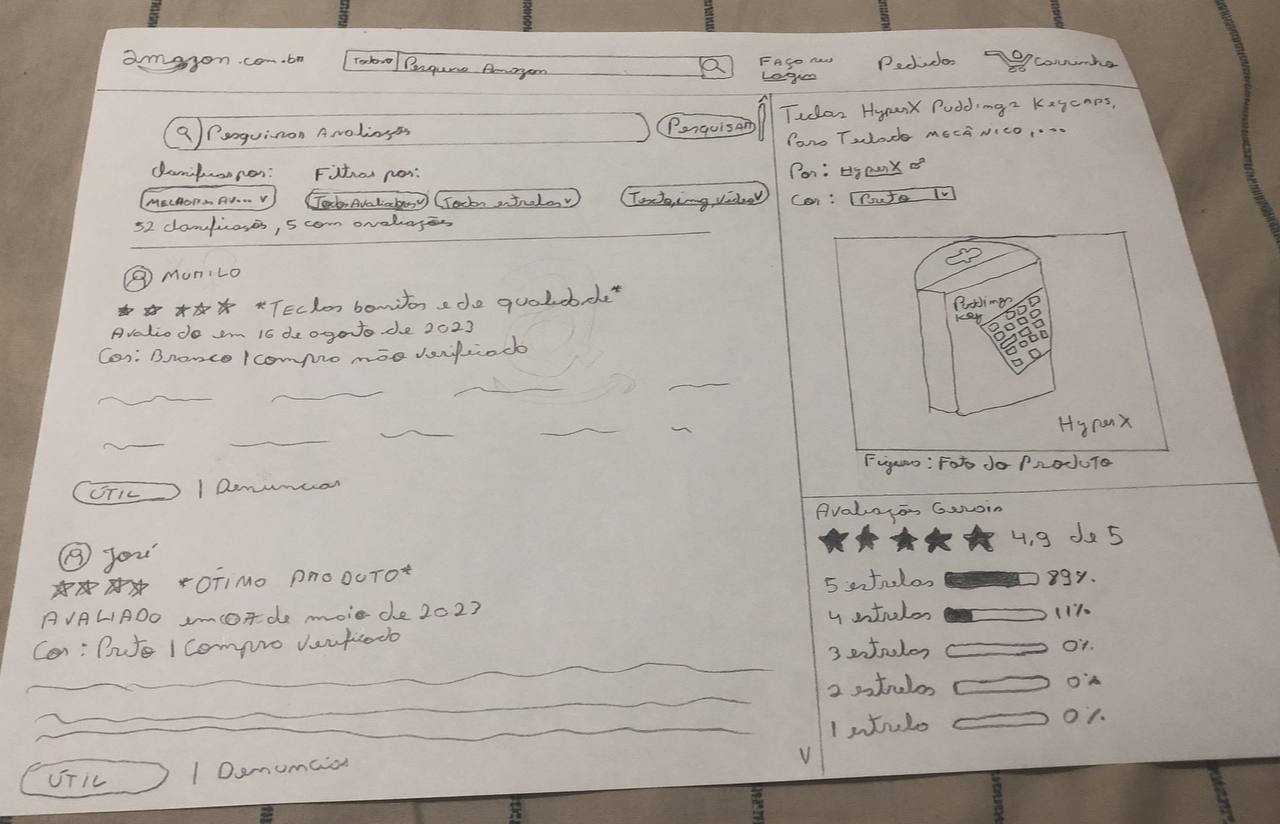 amazon.com.br
Todos Pesquisa Amazon
Faça seu
Login
Pedidos
Carrinho
Pesquisar Avaliações
Pesquisar
Classificar por: Filtrar por:
MELHORES AV... Todos Avaliadores Todas estrelas Texto, img, vídeo
52 classificações, 5 com avaliações
MURILO
*Teclas bonitas e de qualidade*
Avaliado em 16 de agosto de 2023
Cor: Branco | Compra não verificado
ÚTIL | Denunciar
José
*ÓTIMO PRODUTO*
AVALIADO em 07 de maio de 2023
Cor: Preto | Compra verificado
ÚTIL | Denunciar
Teclas HyperX Puddings Keycaps,
Para Teclado MECÂNICO,...
Por: HyperX
Cor: Preto
Puddings
Key
HyperX
Figura: Foto do Produto
Avaliações Gerais
4,9 de 5
5 estrelas 89%
4 estrelas 11%
3 estrelas 0%
2 estrelas 0%
1 estrela 0%